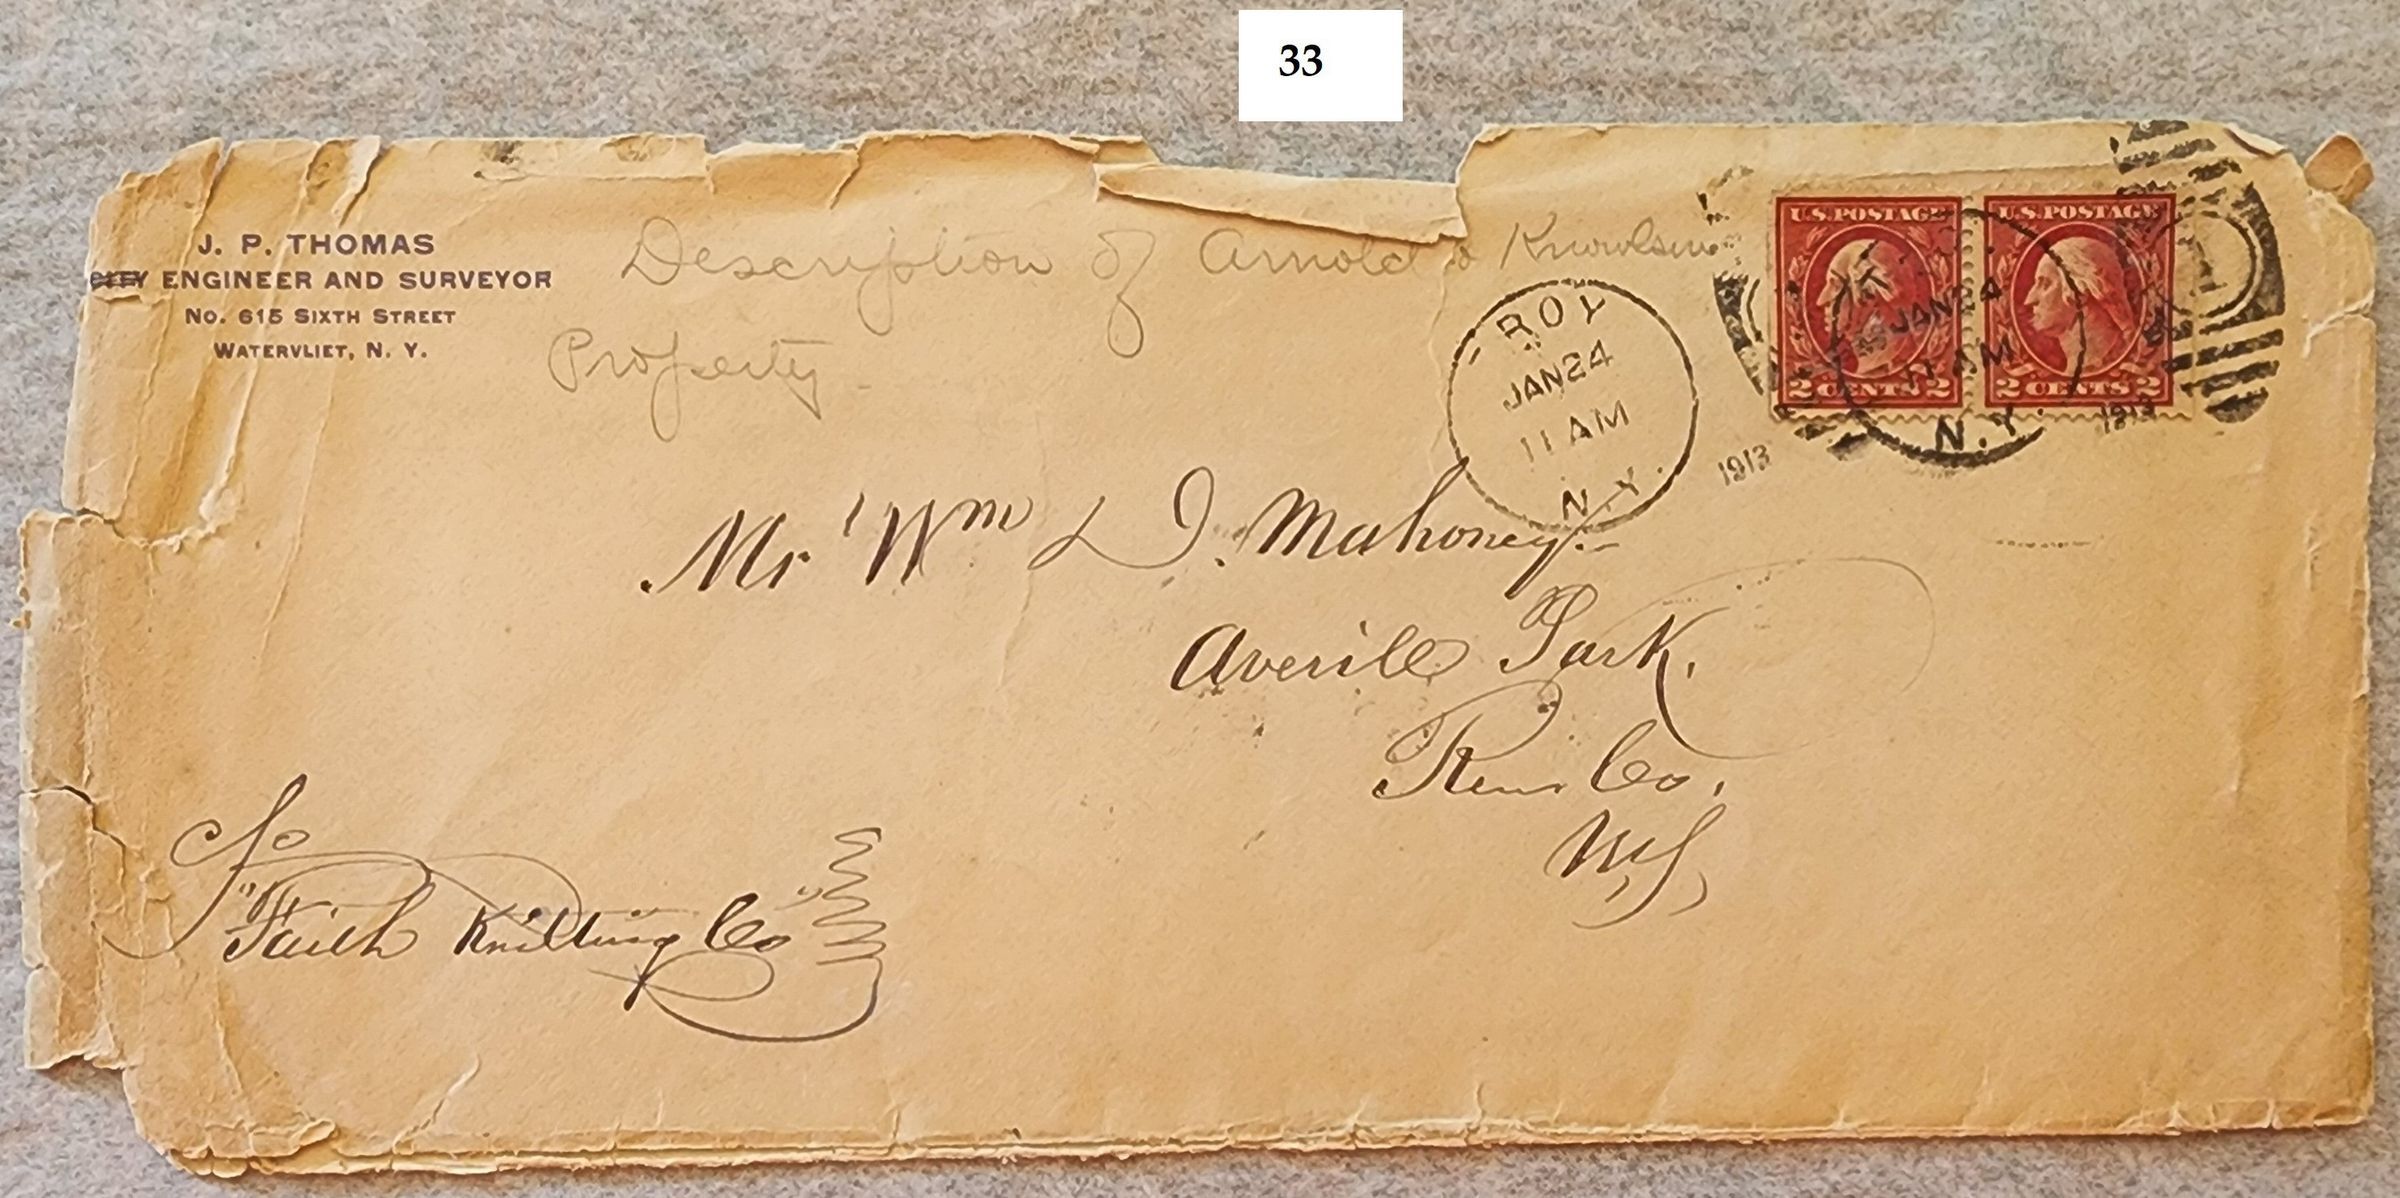 33
J. P. THOMAS
CITY ENGINEER AND SURVEYOR
No. 615 SIXTH STREET
WATERVLIET, N. Y.
Description of Arnold & Knowlson
Property.
U.S. POSTAGE
2 CENTS 2
U.S. POSTAGE
2 CENTS 2
ROY
JAN 24
11 AM
N.Y.
1913
JAN 24
11 AM
N.Y.
1913
Mr Wm D. Mahoney.
Averill Park,
Rens Co,
N,Y,
To
"Faith Knitting Co"